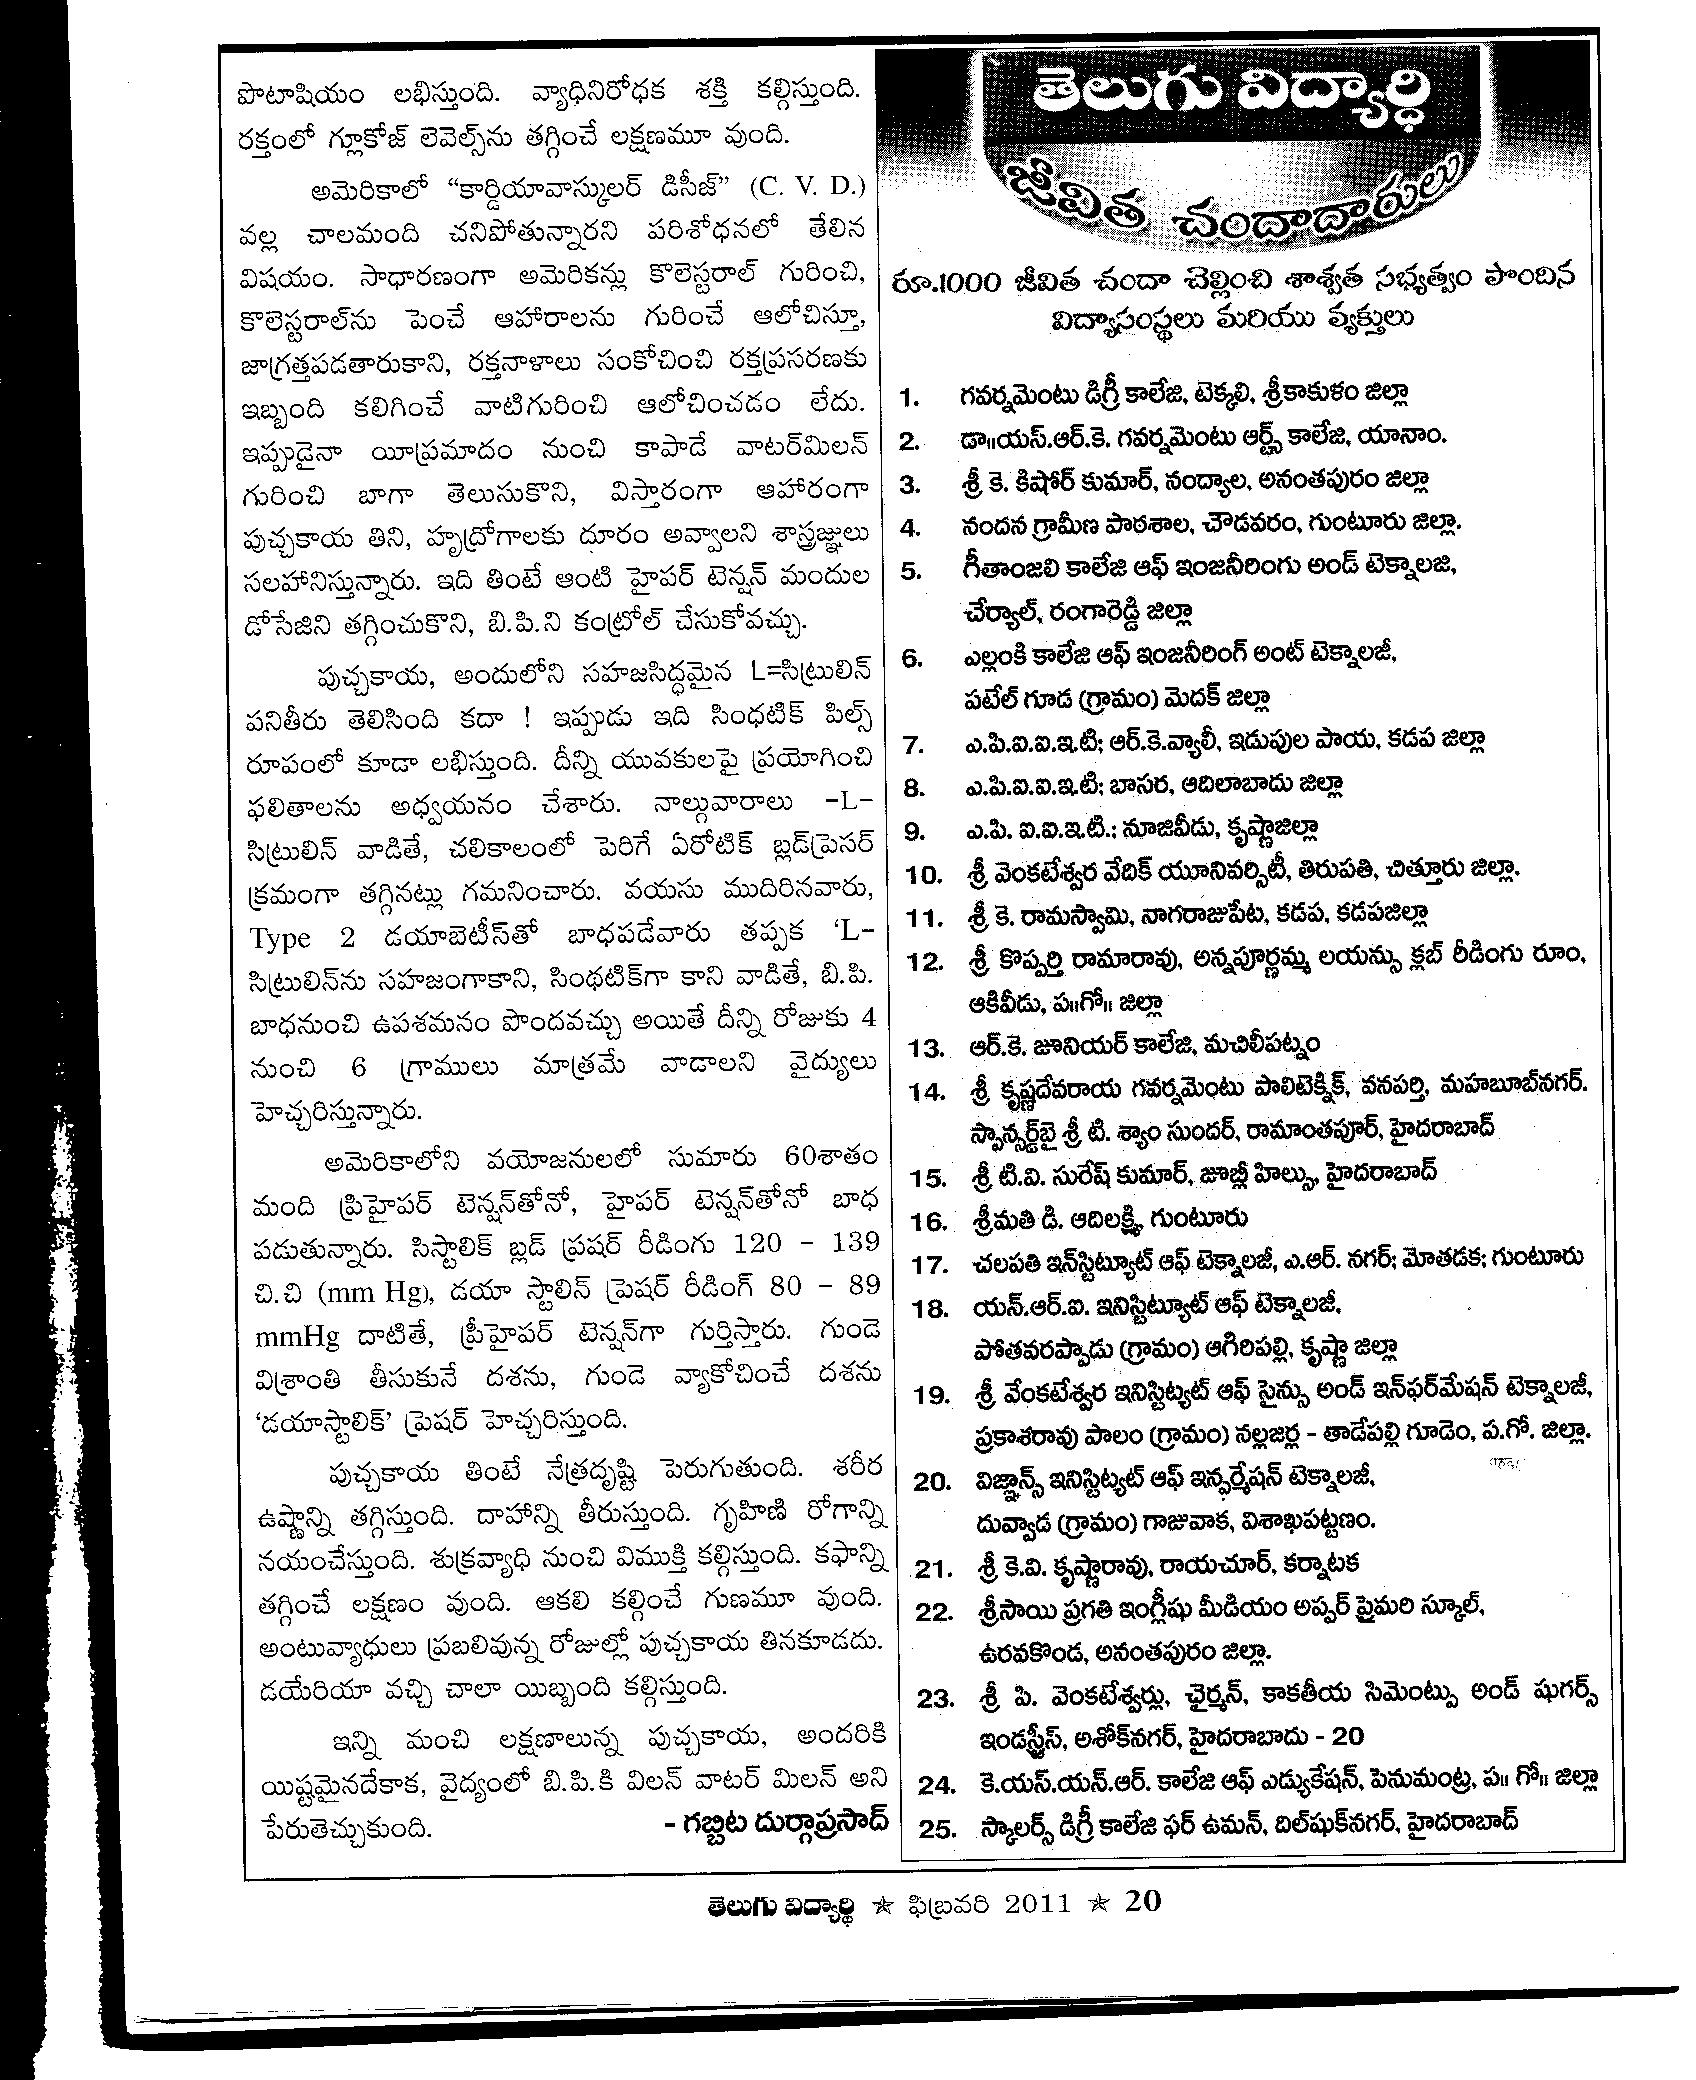 పొటాషియం లభిస్తుంది. వ్యాధినిరోధక శక్తి కల్గిస్తుంది.
రక్తంలో గ్లూకోజ్ లెవెల్స్‌ను తగ్గించే లక్షణమూ వుంది.
అమెరికాలో “కార్డియావాస్కులర్ డిసీజ్” (C. V. D.)
వల్ల చాలమంది చనిపోతున్నారని పరిశోధనలో తేలిన
విషయం. సాధారణంగా అమెరికన్లు కొలెస్టరాల్ గురించి,
కొలెస్టరాల్‌ను పెంచే ఆహారాలను గురించే ఆలోచిస్తూ,
జాగ్రత్తపడతారుకాని, రక్తనాళాలు సంకోచించి రక్తప్రసరణకు
ఇబ్బంది కలిగించే వాటిగురించి ఆలోచించడం లేదు.
ఇప్పుడైనా యీప్రమాదం నుంచి కాపాడే వాటర్‌మిలన్
గురించి బాగా తెలుసుకొని, విస్తారంగా ఆహారంగా
పుచ్చకాయ తిని, హృద్రోగాలకు దూరం అవ్వాలని శాస్త్రజ్ఞులు
సలహానిస్తున్నారు. ఇది తింటే ఆంటి హైపర్ టెన్షన్ మందుల
డోసేజిని తగ్గించుకొని, బి.పి.ని కంట్రోల్ చేసుకోవచ్చు.
పుచ్చకాయ, అందులోని సహజసిద్ధమైన L=సిట్రులిన్
పనితీరు తెలిసింది కదా ! ఇప్పుడు ఇది సింధటిక్ పిల్స్
రూపంలో కూడా లభిస్తుంది. దీన్ని యువకులపై ప్రయోగించి
ఫలితాలను అధ్వయనం చేశారు. నాల్గువారాలు -L-
సిట్రులిన్ వాడితే, చలికాలంలో పెరిగే ఏరోటిక్ బ్లడ్‌ప్రెసర్
క్రమంగా తగ్గినట్లు గమనించారు. వయసు ముదిరినవారు,
Type 2 డయాబెటీస్‌తో బాధపడేవారు తప్పక ‘L-
సిట్రులిన్‌ను సహజంగాకాని, సింథటిక్‌గా కాని వాడితే, బి.పి.
బాధనుంచి ఉపశమనం పొందవచ్చు అయితే దీన్ని రోజుకు 4
నుంచి 6 గ్రాములు మాత్రమే వాడాలని వైద్యులు
హెచ్చరిస్తున్నారు.
అమెరికాలోని వయోజనులలో సుమారు 60శాతం
మంది ప్రిహైపర్ టెన్షన్‌తోనో, హైపర్ టెన్షన్‌తోనో బాధ
పడుతున్నారు. సిస్టాలిక్ బ్లడ్ ప్రషర్ రీడింగు 120 - 139
చి.చి (mm Hg), డయా స్టాలిన్ ప్రెషర్ రీడింగ్ 80 - 89
mmHg దాటితే, ప్రీహైపర్ టెన్షన్‌గా గుర్తిస్తారు. గుండె
విశ్రాంతి తీసుకునే దశను, గుండె వ్యాకోచించే దశను
‘డయాస్టాలిక్’ ప్రెషర్ హెచ్చరిస్తుంది.
పుచ్చకాయ తింటే నేత్రదృష్టి పెరుగుతుంది. శరీర
ఉష్ణాన్ని తగ్గిస్తుంది. దాహాన్ని తీరుస్తుంది. గృహిణి రోగాన్ని
నయంచేస్తుంది. శుక్రవ్యాధి నుంచి విముక్తి కల్గిస్తుంది. కఫాన్ని
తగ్గించే లక్షణం వుంది. ఆకలి కల్గించే గుణమూ వుంది.
అంటువ్యాధులు ప్రబలివున్న రోజుల్లో పుచ్చకాయ తినకూడదు.
డయేరియా వచ్చి చాలా యిబ్బంది కల్గిస్తుంది.
ఇన్ని మంచి లక్షణాలున్న పుచ్చకాయ, అందరికి
యిష్టమైనదేకాక, వైద్యంలో బి.పి.కి విలన్ వాటర్ మిలన్ అని
పేరుతెచ్చుకుంది. - గబ్బిట దుర్గాప్రసాద్
తెలుగు విద్యార్థి
జీవిత చందాదారులు
రూ.1000 జీవిత చందా చెల్లించి శాశ్వత సభ్యత్వం పొందిన
విద్యాసంస్థలు మరియు వ్యక్తులు
1. గవర్నమెంటు డిగ్రీ కాలేజి, టెక్కలి, శ్రీకాకుళం జిల్లా
2. డా॥యస్.ఆర్.కె. గవర్నమెంటు ఆర్ట్స్ కాలేజి, యానాం.
3. శ్రీ కె. కిషోర్ కుమార్, నంద్యాల, అనంతపురం జిల్లా
4. నందన గ్రామీణ పాఠశాల, చౌడవరం, గుంటూరు జిల్లా.
5. గీతాంజలి కాలేజి ఆఫ్ ఇంజనీరింగు అండ్ టెక్నాలజి,
చేర్యాల్, రంగారెడ్డి జిల్లా
6. ఎల్లంకి కాలేజి ఆఫ్ ఇంజనీరింగ్ అంట్ టెక్నాలజీ,
పటేల్ గూడ (గ్రామం) మెదక్ జిల్లా
7. ఎ.పి.ఐ.ఐ.ఇ.టి; ఆర్.కె.వ్యాలీ, ఇడుపుల పాయ, కడప జిల్లా
8. ఎ.పి.ఐ.ఐ.ఇ.టి; బాసర, ఆదిలాబాదు జిల్లా
9. ఎ.పి. ఐ.ఐ.ఇ.టి.; నూజివీడు, కృష్ణాజిల్లా
10. శ్రీ వెంకటేశ్వర వేదిక్ యూనివర్సిటీ, తిరుపతి, చిత్తూరు జిల్లా.
11. శ్రీ కె. రామస్వామి, నాగరాజుపేట, కడప, కడపజిల్లా
12. శ్రీ కొప్పర్తి రామారావు, అన్నపూర్ణమ్మ లయన్సు క్లబ్ రీడింగు రూం,
ఆకివీడు, ప॥గో॥ జిల్లా
13. ఆర్.కె. జూనియర్ కాలేజి, మచిలీపట్నం
14. శ్రీ కృష్ణదేవరాయ గవర్నమెంటు పాలిటెక్నిక్, వనపర్తి, మహబూబ్‌నగర్.
స్పాన్సర్డ్‌బై శ్రీ టి. శ్యాం సుందర్, రామాంతపూర్, హైదరాబాద్
15. శ్రీ టి.వి. సురేష్ కుమార్, జూబ్లీ హిల్సు, హైదరాబాద్
16. శ్రీమతి డి. ఆదిలక్ష్మి, గుంటూరు
17. చలపతి ఇన్‌స్టిట్యూట్ ఆఫ్ టెక్నాలజీ, ఎ.ఆర్. నగర్; మోతడక; గుంటూరు
18. యన్.ఆర్.ఐ. ఇనిస్టిట్యూట్ ఆఫ్ టెక్నాలజీ,
పోతవరప్పాడు (గ్రామం) ఆగిరిపల్లి, కృష్ణా జిల్లా
19. శ్రీ వేంకటేశ్వర ఇనిస్టిట్యట్ ఆఫ్ సైన్సు అండ్ ఇన్‌ఫర్‌మేషన్ టెక్నాలజీ,
ప్రకాశరావు పాలం (గ్రామం) నల్లజర్ల - తాడేపల్లి గూడెం, ప.గో. జిల్లా.
20. విజ్ఞాన్స్ ఇనిస్టిట్యట్ ఆఫ్ ఇన్ఫర్మేషన్ టెక్నాలజీ,
దువ్వాడ (గ్రామం) గాజువాక, విశాఖపట్టణం.
21. శ్రీ కె.వి. కృష్ణారావు, రాయచూర్, కర్నాటక
22. శ్రీసాయి ప్రగతి ఇంగ్లీషు మీడియం అప్పర్ ప్రైమరి స్కూల్,
ఉరవకొండ, అనంతపురం జిల్లా.
23. శ్రీ పి. వెంకటేశ్వర్లు, ఛైర్మన్, కాకతీయ సిమెంట్సు అండ్ షుగర్స్
ఇండస్ట్రీస్, అశోక్‌నగర్, హైదరాబాదు - 20
24. కె.యస్.యన్.ఆర్. కాలేజి ఆఫ్ ఎడ్యుకేషన్, పెనుమంట్ర, ప॥ గో॥ జిల్లా
25. స్కాలర్స్ డిగ్రీ కాలేజి ఫర్ ఉమన్, దిల్‌షుక్‌నగర్, హైదరాబాద్
తెలుగు విద్యార్థి ★ ఫిబ్రవరి 2011 ★ 20